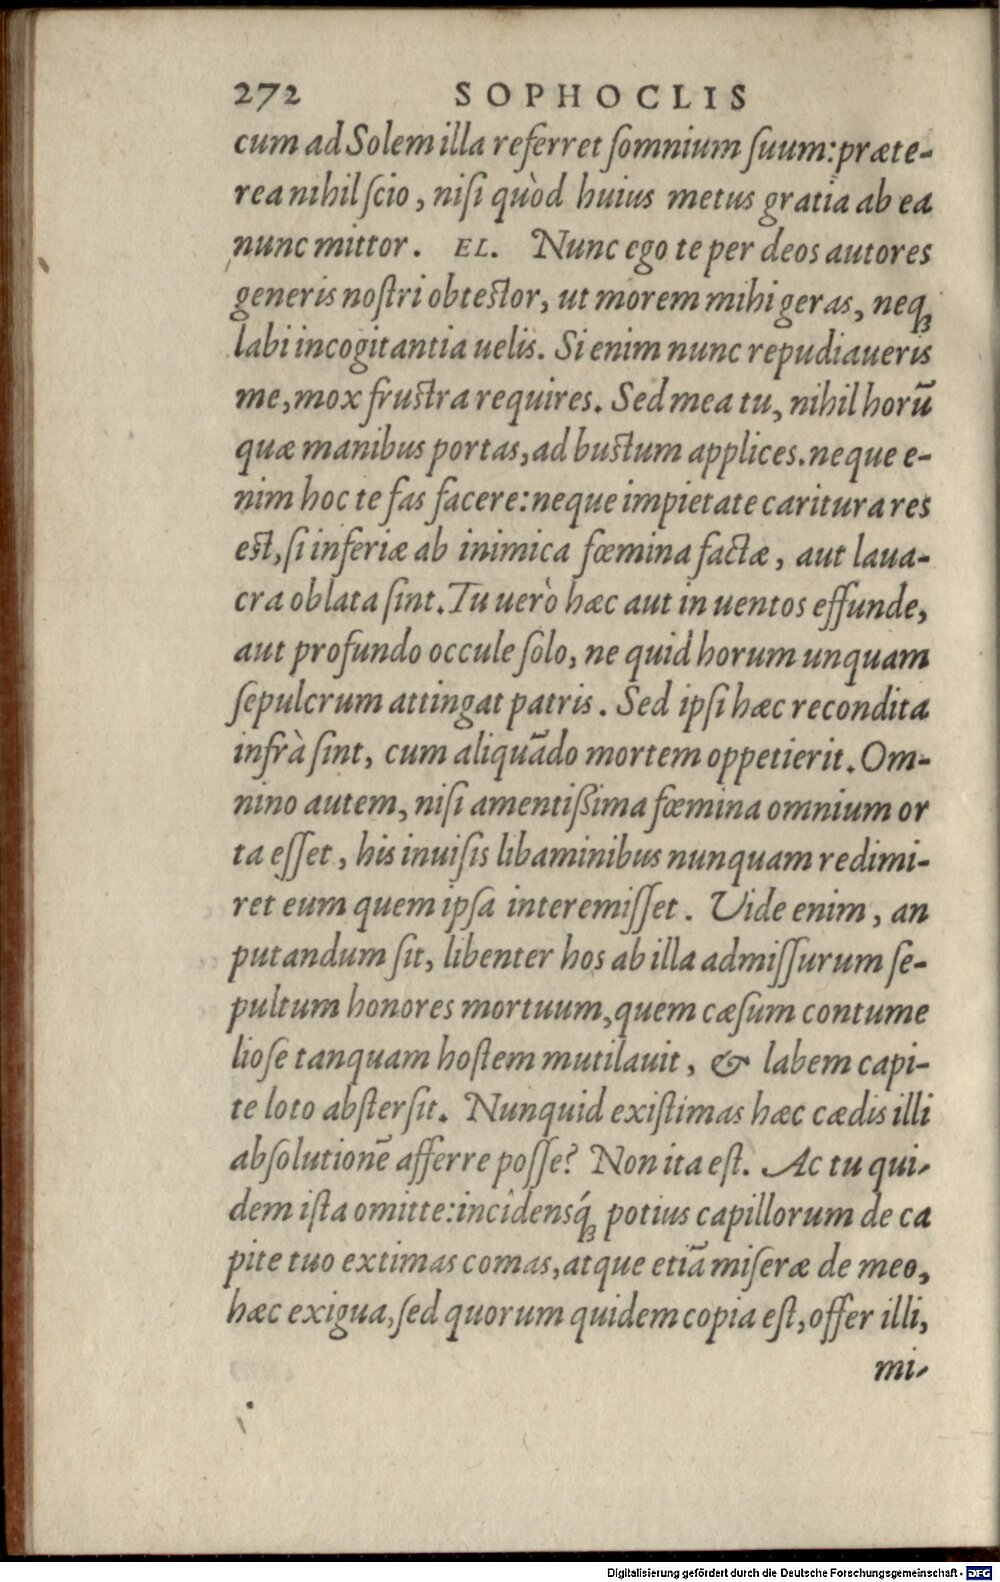 272 SOPHOCLIS
cum ad Solem illa referret ſomnium ſuum: præte-
rea nihil ſcio, niſi quòd huius metus gratia ab ea
nunc mittor. EL. Nunc ego te per deos autores
generis noſtri obteſtor, ut morem mihi geras, neqꝫ
labi incogitantia uelis. Si enim nunc repudiaueris
me, mox fruſtra requires. Sed mea tu, nihil horū
quæ manibus portas, ad buſtum applices. neque e-
nim hoc te fas facere: neque impietate caritura res
eſt, ſi inferiæ ab inimica fœmina factæ, aut laua-
cra oblata ſint. Tu uerò hæc aut in uentos effunde,
aut profundo occule ſolo, ne quid horum unquam
ſepulcrum attingat patris. Sed ipſi hæc recondita
infrà ſint, cum aliquādo mortem oppetierit. Om-
nino autem, niſi amentißima fœmina omnium or
ta eſſet, his inuiſis libaminibus nunquam redimi-
ret eum quem ipſa interemiſſet. Vide enim, an
putandum ſit, libenter hos ab illa admiſſurum ſe-
pultum honores mortuum, quem cæſum contume
lioſe tanquam hoſtem mutilauit, & labem capi-
te loto abſterſit. Nunquid exiſtimas hæc cædis illi
abſolutionē afferre poſſe? Non ita eſt. Ac tu qui-
dem iſta omitte: incidensq́ꝫ potius capillorum de ca
pite tuo extimas comas, atque etiā miſeræ de meo,
hæc exigua, ſed quorum quidem copia eſt, offer illi,
mi-
Digitalisierung gefördert durch die Deutsche Forschungsgemeinschaft - DFG